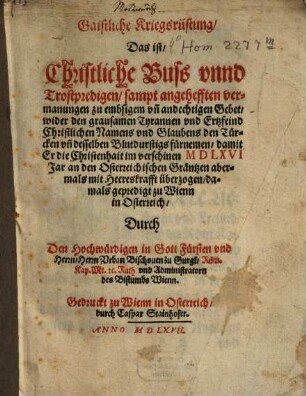 Gaistliche Kriegsrüstung/
Das ist/
Hom 2277 m
Christliche Buss vnnd
Trostpredigen/ sampt angehefften ver-
manungen zu embsigen vñ andechtigen Gebet/
wider den grausamen Tyrannen vnd Ertzfeind
Christlichen Namens vnd Glaubens den Tür-
cken vñ desselben Blutdurstigs fürnemen/ damit
Er die Christenhait im verschinen M D LXVI
Jar an den Osterreichischen Gräntzen aber-
mals mit Heereskrafft überzogen/ da-
mals gepredigt zu Wienn
in Osterreich/
Durch
Den Hochwürdigen in Gott Fürsten vnd
Herrn/ Herrn Vrban Bischouen zu Gurgk/ Röm.
Kay. Mt. ꝛc. Rath vnd Administratorn
des Bistumbs Wienn.
Gedruckt zu Wienn in Osterreich/
durch Caspar Stainhofer.
ANNO M D LXVII.